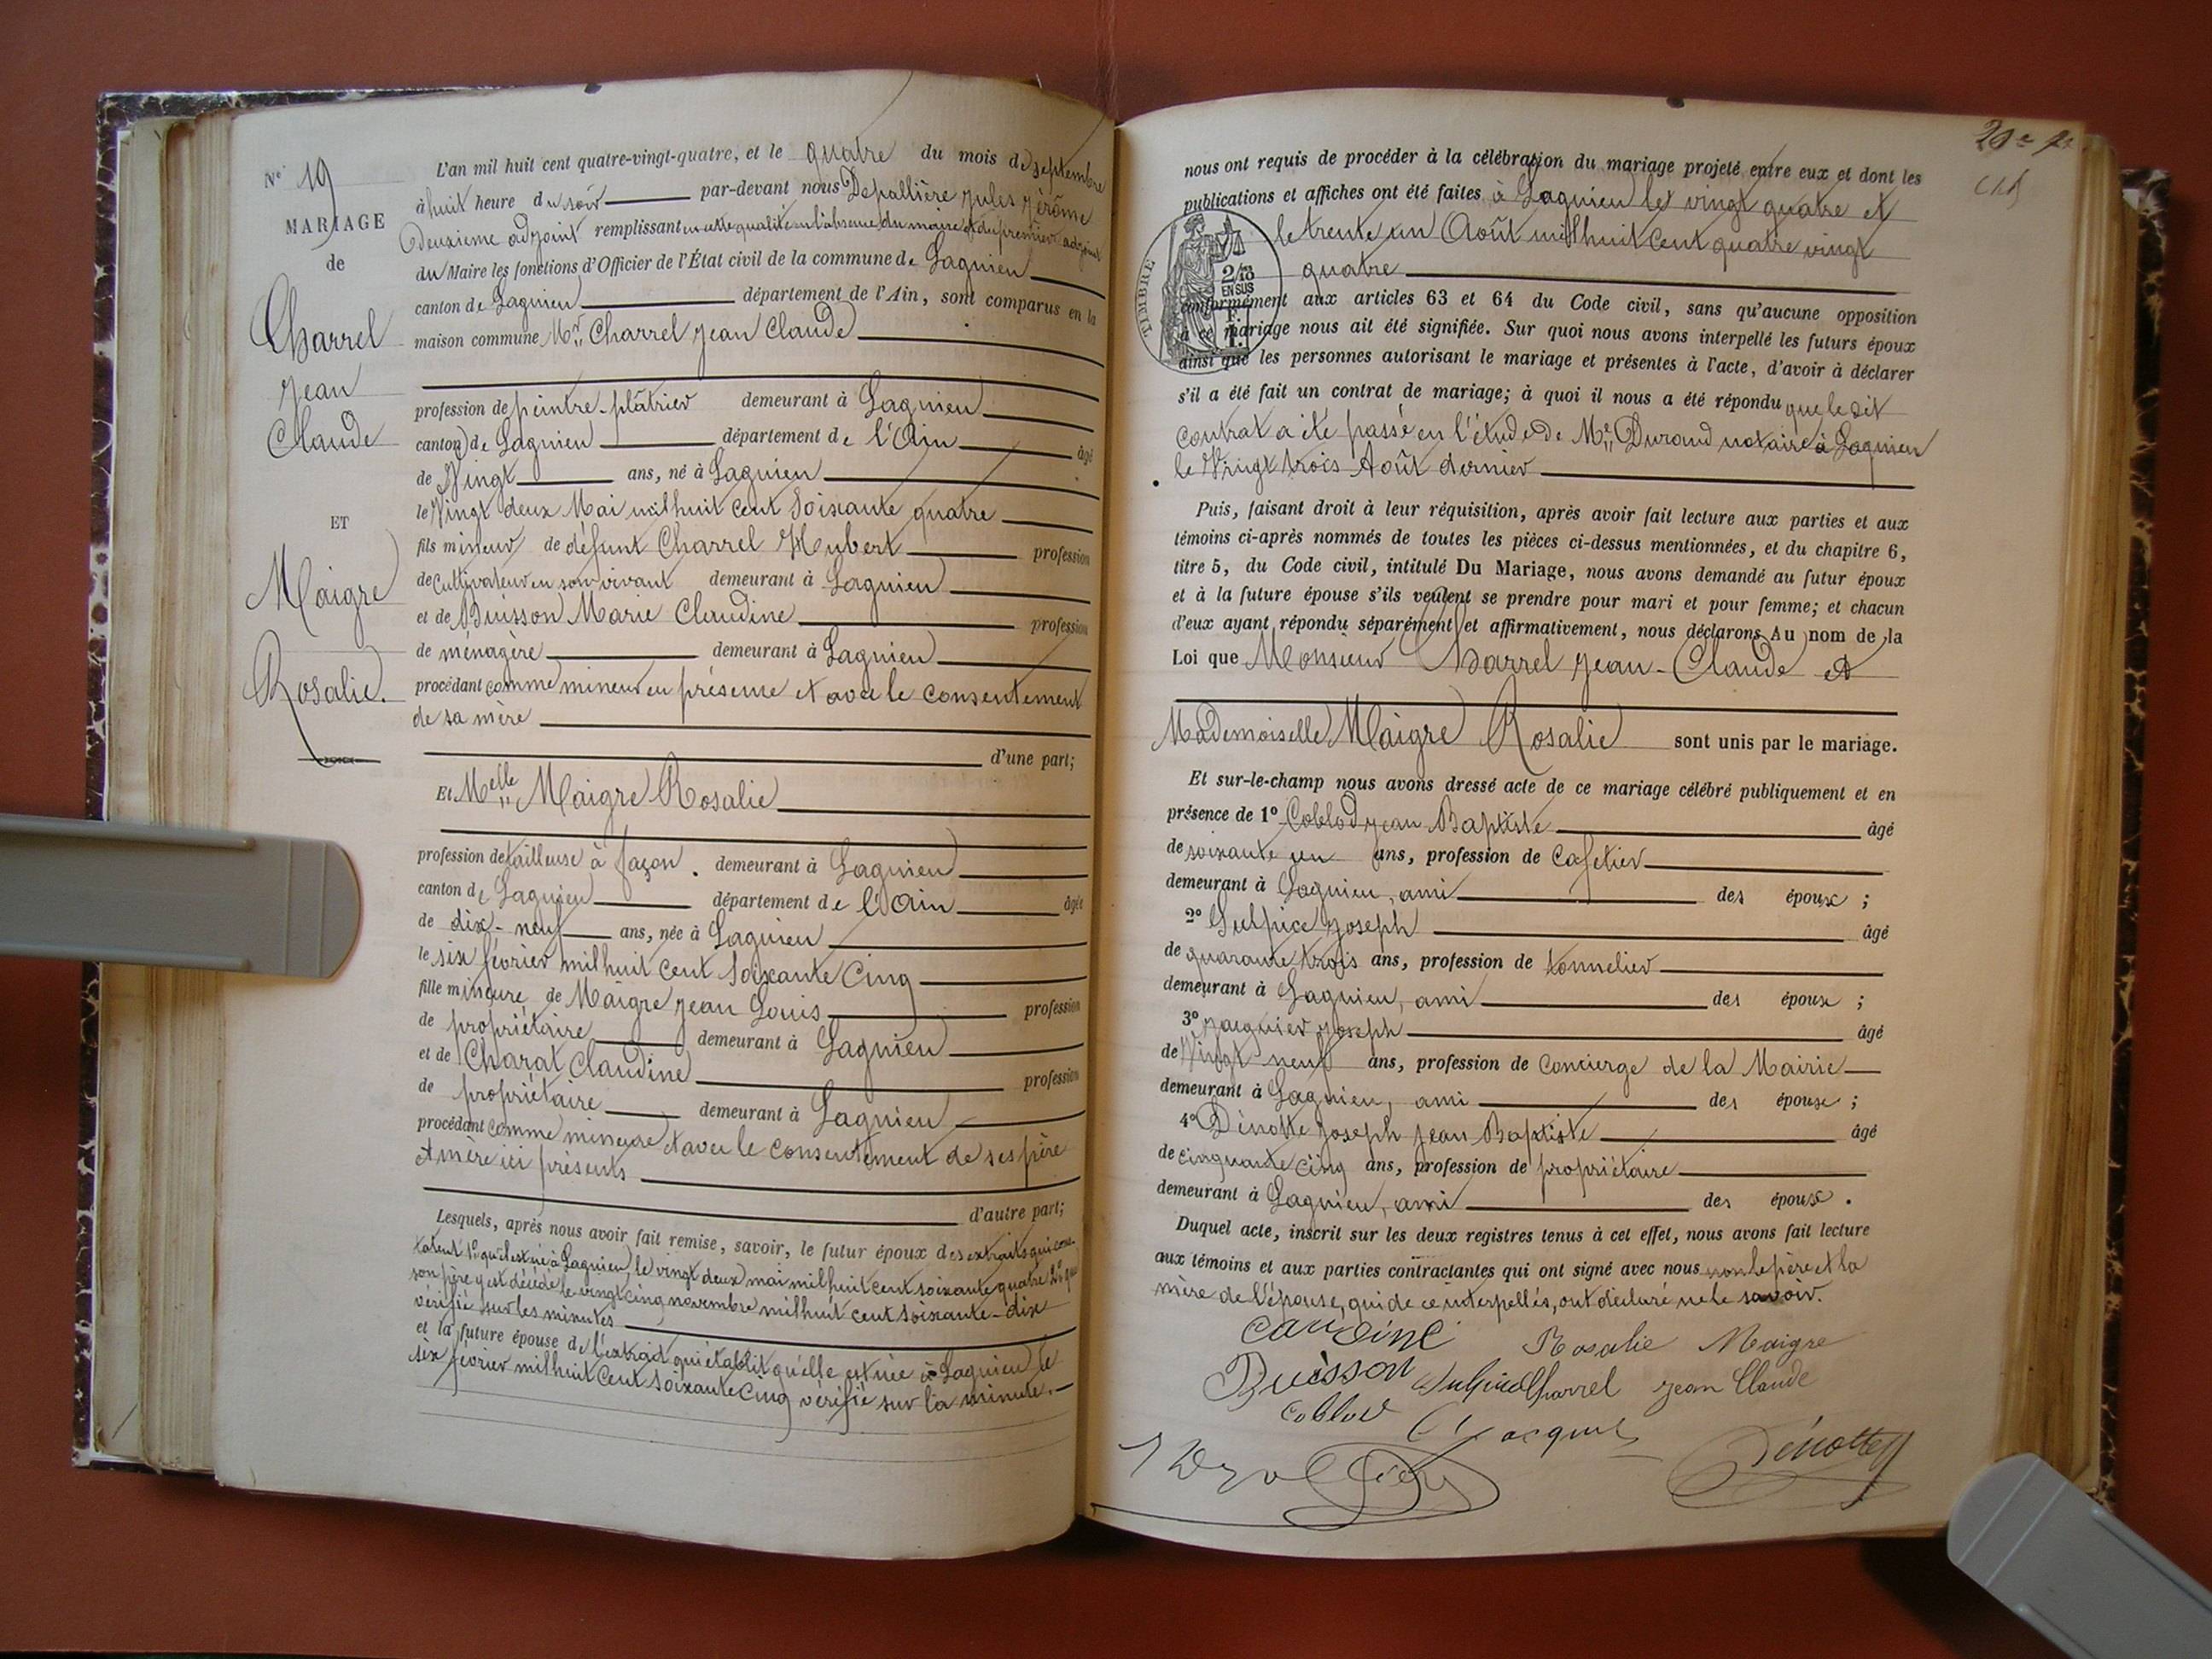 N° 19
MARIAGE
de
Charrel
Jean
Claude
ET
Maigre
Rosalie.
L'an mil huit cent quatre-vingt-quatre, et le quatre du mois de septembre
à huit heure du soir par-devant nous Depallière Jules Jérôme
Deuxieme adjoint remplissant en cette qualité en l'absence du maire et du premier adjoint
du Maire les fonctions d'Officier de l'État civil de la commune de Lagnieu
canton de Lagnieu département de l'Ain, sont comparus en la
maison commune Mr Charrel Jean Claude
profession de peintre-plâtrier demeurant à Lagnieu
canton de Lagnieu département de l'Ain âgé
de Vingt ans, né à Lagnieu
le Vingt deux Mai mil huit cent soixante quatre
fils mineur de défunt Charrel Hubert profession
de cultivateur en son vivant demeurant à Lagnieu
et de Buisson Marie Claudine profession
de ménagère demeurant à Lagnieu
procédant comme mineur en présence et avec le consentement
de sa mère
d'une part;
Et Melle Maigre Rosalie
profession de tailleuse à façon. demeurant à Lagnieu
canton de Lagnieu département de l'Ain âgée
de dix-neuf ans, née à Lagnieu
le six février mil huit cent soixante cinq
fille mineure de Maigre Jean Louis profession
de propriétaire demeurant à Lagnieu
et de Charat Claudine profession
de propriétaire demeurant à Lagnieu
procédant comme mineure et avec le consentement de ses père
et mère ici présents
d'autre part;
Lesquels, après nous avoir fait remise, savoir, le futur époux des extraits qui cons-
tatent 1° qu'il est né à Lagnieu le vingt deux mai mil huit cent soixante quatre 2° que
son père y est décédé le vingt cinq novembre mil huit cent soixante-dix
vérifié sur les minutes
et la future épouse de l'extrait qui établit qu'elle est née à Lagnieu le
six février mil huit cent soixante cinq vérifié sur la minute.
nous ont requis de procéder à la célébration du mariage projeté entre eux et dont les
publications et affiches ont été faites à Lagnieu les vingt quatre et
le trente un Août mil huit cent quatre vingt
quatre
TIMBRE
2/10
EN SUS
conformément aux articles 63 et 64 du Code civil, sans qu'aucune opposition
à ce mariage nous ait été signifiée. Sur quoi nous avons interpellé les futurs époux
ainsi que les personnes autorisant le mariage et présentes à l'acte, d'avoir à déclarer
s'il a été fait un contrat de mariage; à quoi il nous a été répondu que le dit
contrat a été passé en l'étude de Me Durand notaire à Lagnieu
le Vingt trois Août dernier
Puis, faisant droit à leur réquisition, après avoir fait lecture aux parties et aux
témoins ci-après nommés de toutes les pièces ci-dessus mentionnées, et du chapitre 6,
titre 5, du Code civil, intitulé Du Mariage, nous avons demandé au futur époux
et à la future épouse s'ils veulent se prendre pour mari et pour femme; et chacun
d'eux ayant répondu séparément et affirmativement, nous déclarons Au nom de la
Loi que Monsieur Charrel Jean-Claude et
Mademoiselle Maigre Rosalie sont unis par le mariage.
Et sur-le-champ nous avons dressé acte de ce mariage célébré publiquement et en
présence de 1° Coblod Jean Baptiste âgé
de soixante un ans, profession de Cafetier
demeurant à Lagnieu, ami des époux ;
2° Sulpice Joseph âgé
de quarante trois ans, profession de tonnelier
demeurant à Lagnieu, ami des époux ;
3° Jacquier Joseph âgé
de Vingt neuf ans, profession de Concierge de la Mairie
demeurant à Lagnieu, ami des époux ;
4° Dénotte Joseph Jean Baptiste âgé
de cinquante cinq ans, profession de propriétaire
demeurant à Lagnieu, ami des époux.
Duquel acte, inscrit sur les deux registres tenus à cet effet, nous avons fait lecture
aux témoins et aux parties contractantes qui ont signé avec nous non le père et la
mère de l'épouse, qui de ce interpellés, ont déclaré ne le savoir.
Rosalie Maigre
Buisson Charrel Jean Claude
Coblod
Dénotte